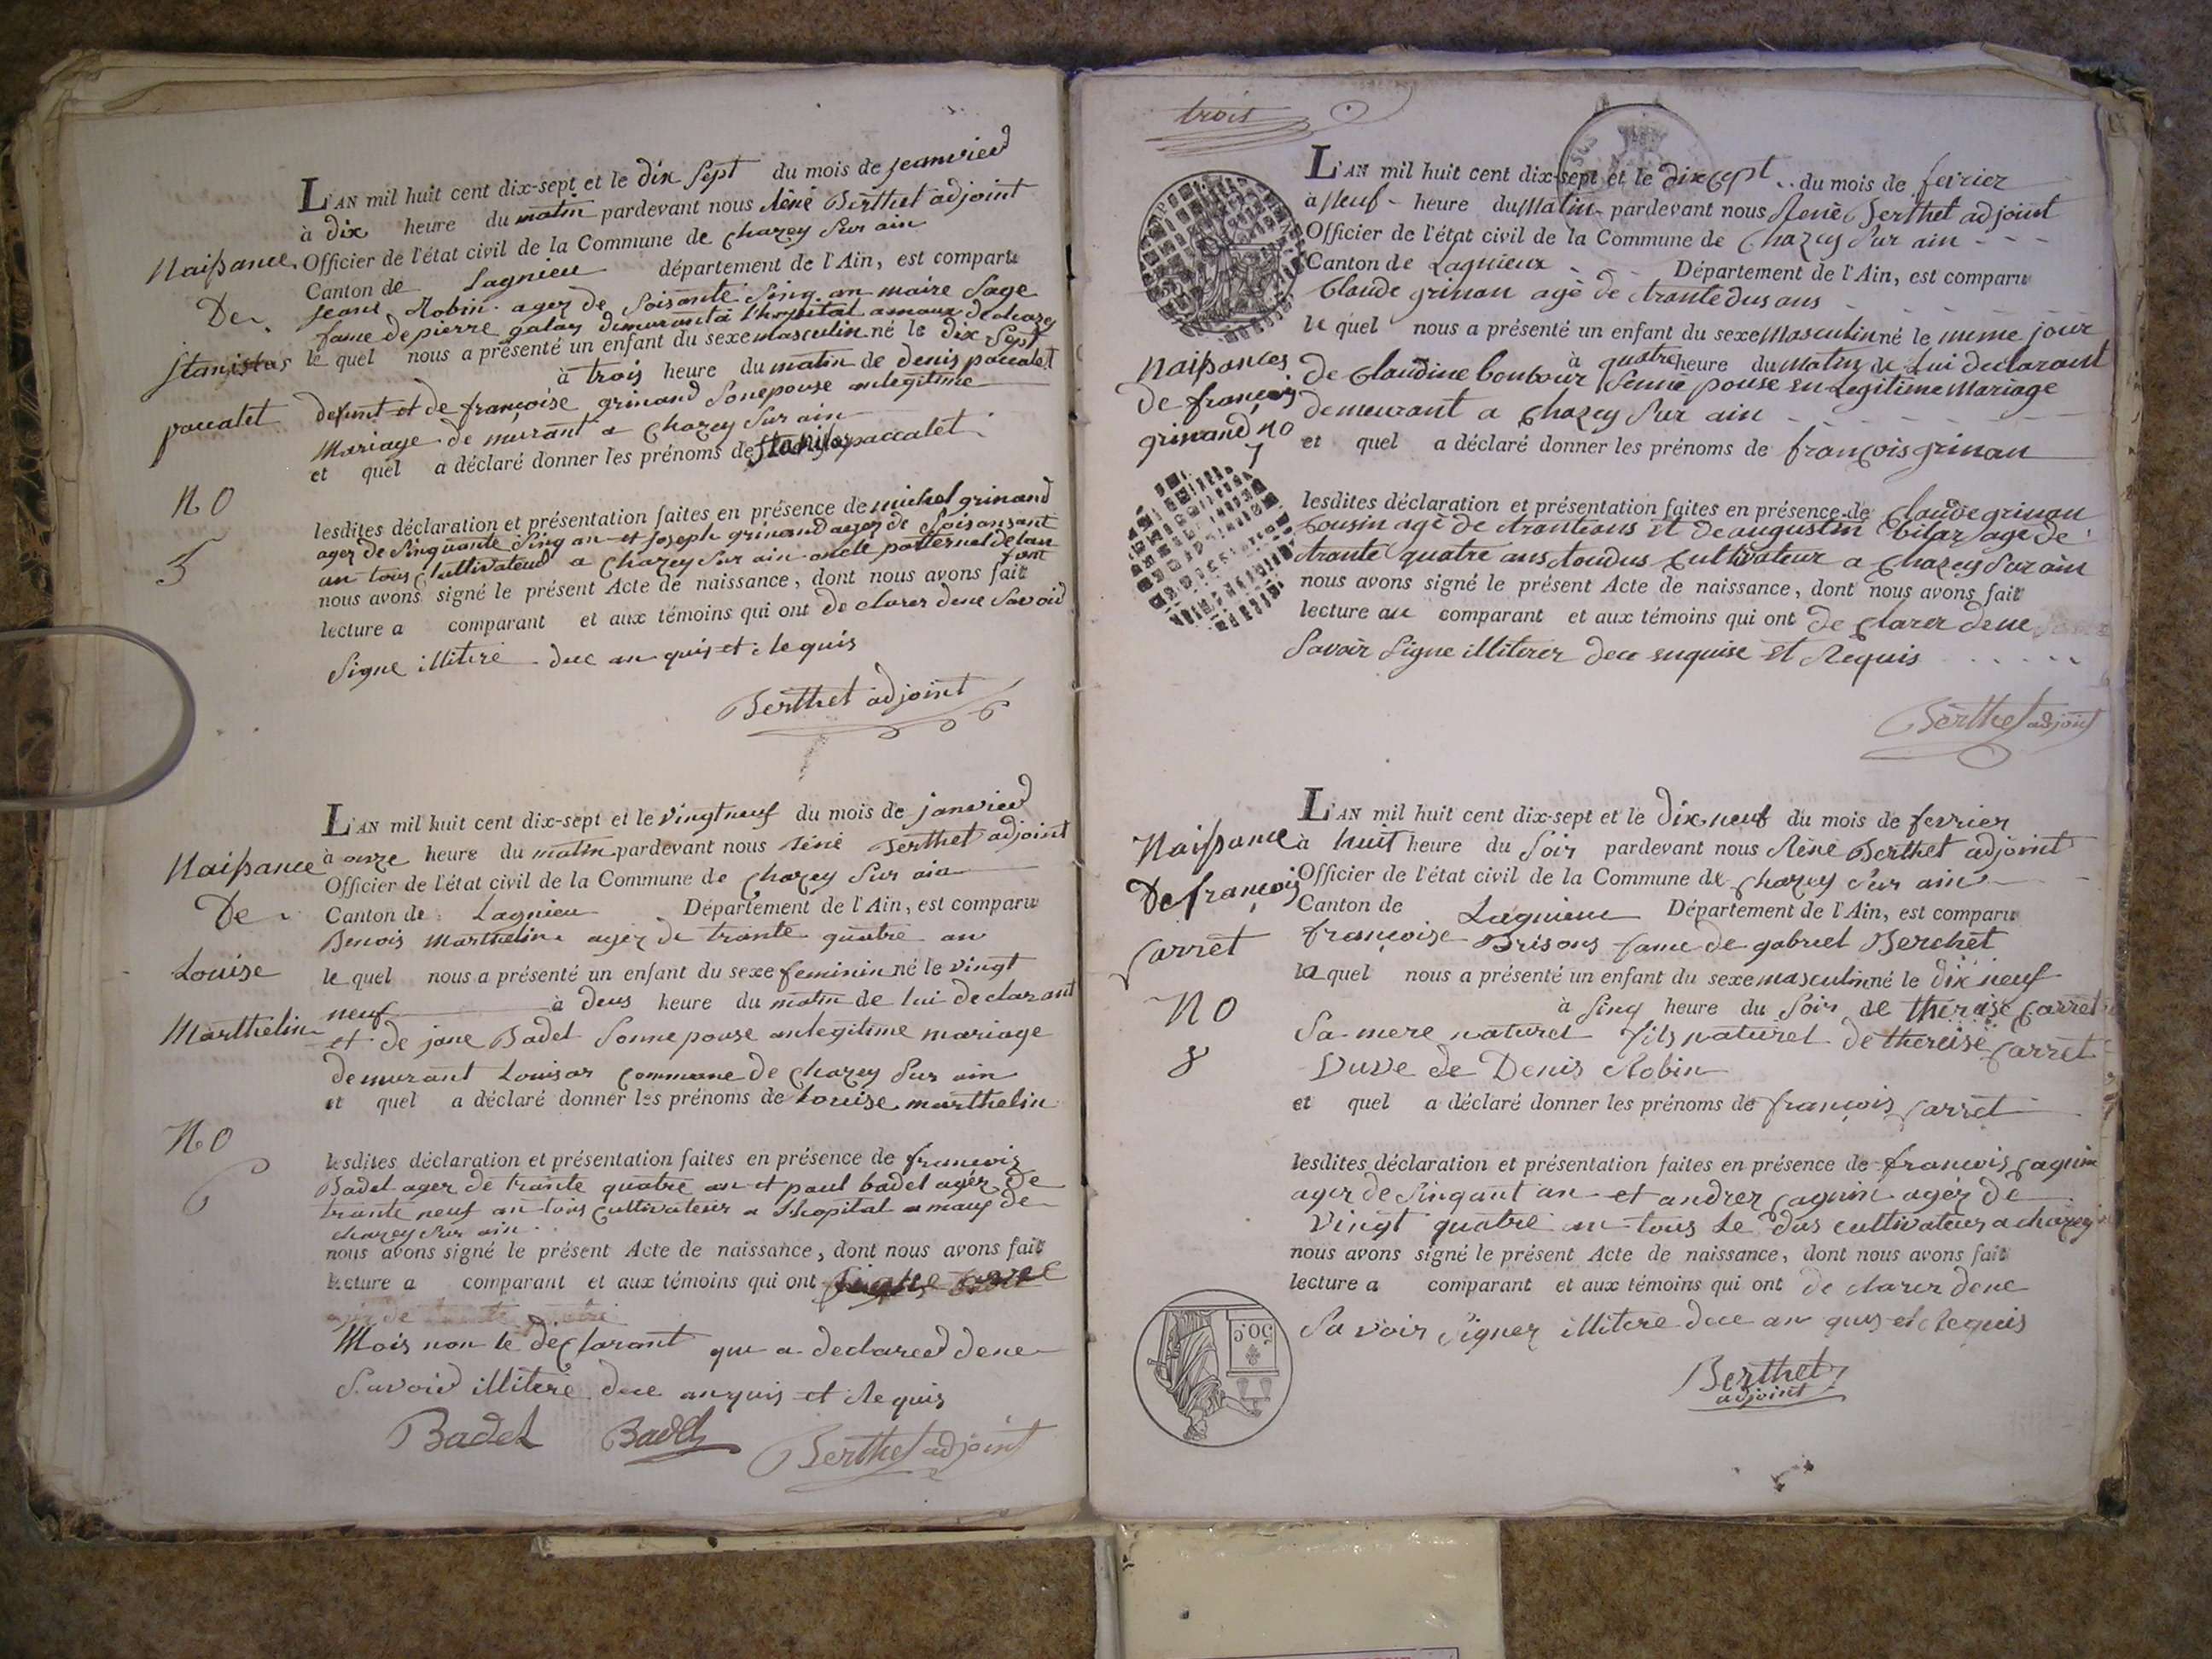 L'AN mil huit cent dix-sept et le dix sept du mois de jeanvied
à dix heure du matin pardevant nous Réné Berthet adjoint
Officier de l'état civil de la Commune de chazey sur ain
Canton de Lagnieu département de l'Ain, est comparu
jeane Robin agez de soisante sinq an maire sage
fame de pierre galay demuranta l'hopital amaux de chazey
le quel nous a présenté un enfant du sexe masculin né le dix sept
à trois heure du matin de denis paccalet
defunt et de françoise grinand sonepouse anlegitime
Mariage de murant a chazey sur ain
et quel a déclaré donner les prénoms de stanislas paccalet
lesdites déclaration et présentation faites en présence de michel grinand
agez de sinquante sing an et joseph grinand agez de soisansant
an tous cultivateurs a chazey sur ain oncle patternel de lan
font
nous avons signé le présent Acte de naissance, dont nous avons fait
lecture a comparant et aux témoins qui ont de clarer dene savoid
signe illitere dece an quis et Requis
Berthet adjoint
Naissance
De
stanislas
paccalet
NO
5
L'AN mil huit cent dix-sept et le vingtneuf du mois de janvied
à onze heure du matin pardevant nous réné Berthet adjoint
Officier de l'état civil de la Commune de chazey sur ain
Canton de Lagnieu Département de l'Ain, est comparu
Benois Marthelin agez de trante quatre an
le quel nous a présenté un enfant du sexe feminin né le vingt
neuf à deus heure du matin de lui declarant
et de jane Badel sonnepouse anlegitime mariage
demurant Louisar commune de chazey sur ain
et quel a déclaré donner les prénoms de Louise marthelin
lesdites déclaration et présentation faites en présence de francois
Badel ager de trante quatre an et paul badel agér de
trante neuf an tous cultivateur a l'hopital amaux de
chazey sur ain
nous avons signé le présent Acte de naissance, dont nous avons fait
lecture a comparant et aux témoins qui ont
Mais non le declarant que a declared dene
Savoid illitere dece anquis et Requis
Badel Badel Berthet adjoint
Naissance
De
Louise
Marthelin
NO
6
trois
L'AN mil huit cent dix-sept et le dix sept du mois de fevrier
à Neuf heure du Matin pardevant nous René Berthet adjoint
Officier de l'état civil de la Commune de Chazey sur ain
Canton de Lagnieux Département de l'Ain, est comparu
Claude grinan agè de trante dus ans
le quel nous a présenté un enfant du sexe Masculin né le meme jour
à quatre heure du Matin de Lui declarant
de Claudine bonbour senne pouse en Legitime Mariage
demeurant a Chazey sur ain
et quel a déclaré donner les prénoms de françois grinan
lesdites déclaration et présentation faites en présence de Claude grinan
Cousin agè de trantians et de augustin bilaz age de
trante quatre ans toudus Cultivateur a Chazey sur ain
nous avons signé le présent Acte de naissance, dont nous avons fait
lecture au comparant et aux témoins qui ont de clarer dene
Savoir signe illiterer dece enquise et Requis
Berthet adjoint
Naissances
de françois
grinand NO
7
L'AN mil huit cent dix-sept et le Dix neuf du mois de fevrier
à huit heure du soir pardevant nous Réné Berthet adjoint
Officier de l'état civil de la Commune de chazey sur ain
Canton de Lagnieux Département de l'Ain, est comparu
françoise Brisons fame de gabriel Berchet
la quel nous a présenté un enfant du sexe masculin né le dix neuf
à sinq heure du soir de therese Carret
Sa mere naturel fils naturel de thereise Carret
Vuve de Denis Robin
et quel a déclaré donner les prénoms de françois Carret
lesdites déclaration et présentation faites en présence de francois Cagnin
ager de sinqant an et andrer Cagnin agér de
Vingt quatre an tous le dus cultivateur a chazey
nous avons signé le présent Acte de naissance, dont nous avons fait
lecture a comparant et aux témoins qui ont de clarer dene
Sa voir signer illitere dece an quis et Requis
Berthet
adjoint
Naissance
De françois
Carret
NO
8
50.c